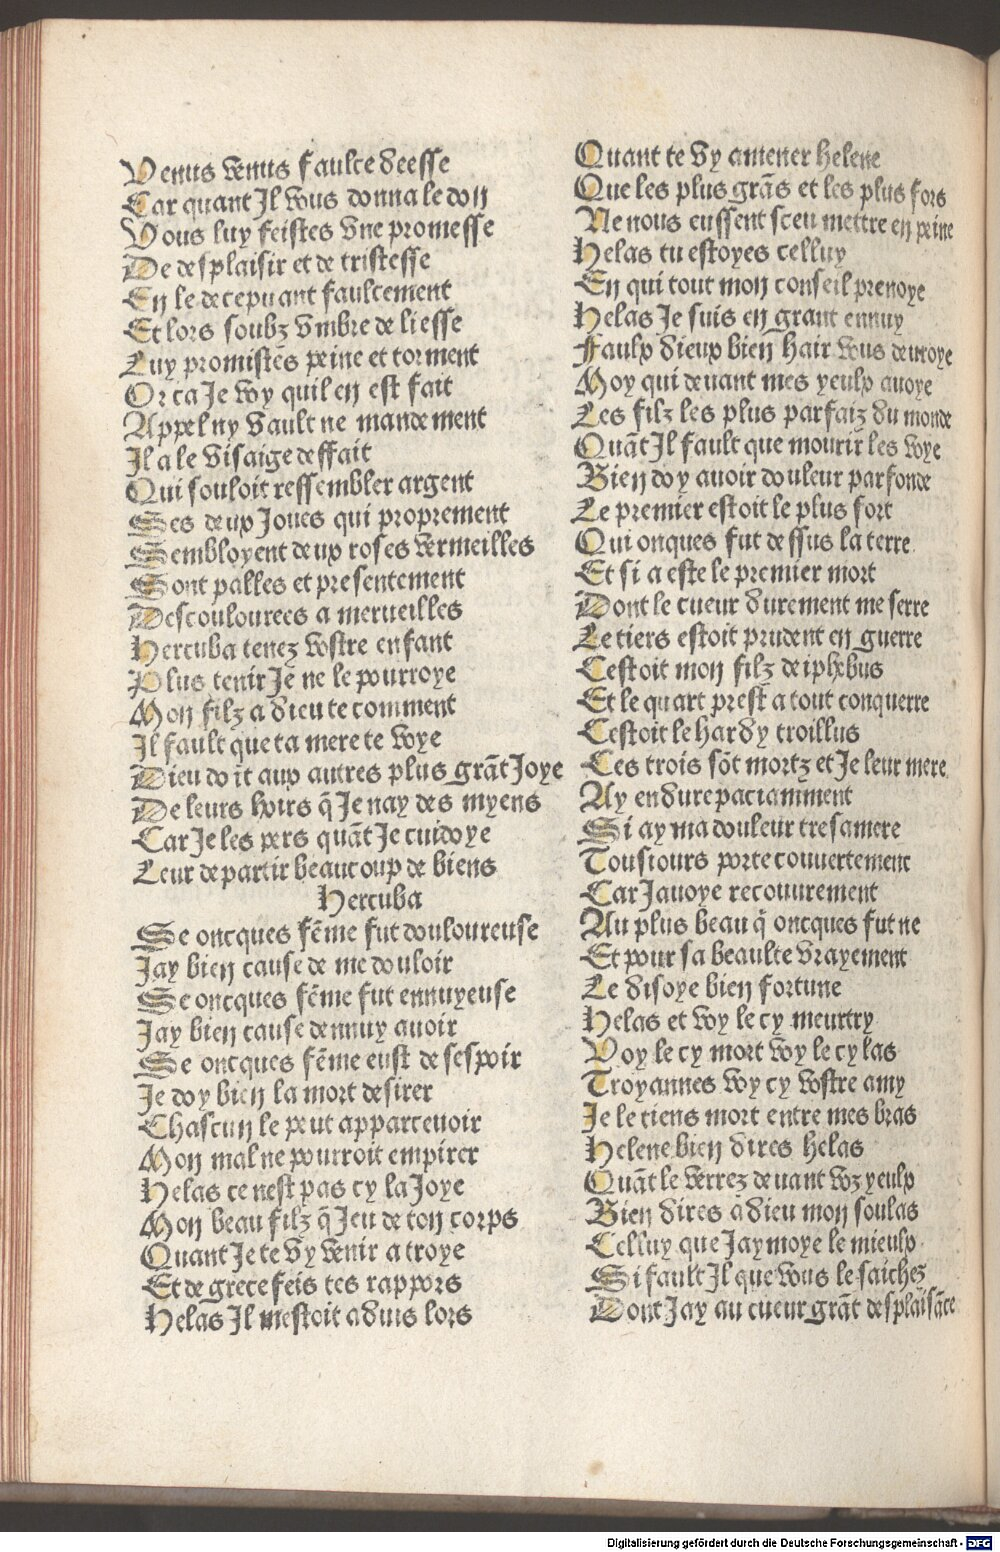 Venus venus faulce deesse
Car quant Il vous donna le don
Vous luy feistes vne promesse
De desplaisir et de tristesse
En le decepuant faulcement
Et lors soubz vmbre de liesse
Luy promistes peine et torment
Or ca Je voy quil en est fait
Appel ny vault ne mandement
Il a le visaige deffait
Qui souloit ressembler argent
Ses deux Joues qui proprement
Sembloyent deux roses vermeilles
Sont palles et presentement
Descoulourees a merueilles
Hercuba tenez vostre enfant
Plus tenir Je ne le pourroye
Mon filz a dieu te comment
Il fault que ta mere te voye
Dieu doit aux autres plus grãt Joye
De leurs hoirs q̃ Je nay des myens
Car Je les pers quãt Je cuidoye
Leur departir beaucoup de biens
Hercuba
Se oncques fẽme fut douloureuse
Jay bien cause de me douloir
Se oncques fẽme fut ennuyeuse
Jay bien cause dennuy auoir
Se oncques fẽme eust desespoir
Je doy bien la mort desirer
Chascun le peut apparceuoir
Mon mal ne pourroit empirer
Helas ce nest pas cy la Joye
Mon beau filz q̃ Jeu de ton corps
Quant Je te vy venir a troye
Et de grece feis tes rappors
Helas Il mestoit aduis lors
Quant te vy amener helene
Que les plus grãs et les plus fors
Ne nous eussent sceu mettre en peine
Helas tu estoyes celluy
En qui tout mon conseil prenoye
Helas Je suis en grant ennuy
Faulx dieux bien hair vous deuroye
Moy qui deuant mes yeulx auoye
Les filz les plus parfaiz du monde
Quãt Il fault que mourir les voye
Bien doy auoir douleur parfonde
Le premier estoit le plus fort
Qui onques fut dessus la terre
Et si a este le premier mort
Dont le cueur durement me serre
Le tiers estoit prudent en guerre
Cestoit mon filz deiphebus
Et le quart prest a tout conquerre
Cestoit le hardy troillus
Ces trois sõt mortz et Je leur mere
Ay endure paciamment
Si ay ma douleur tresamere
Tousiours porte couuertement
Car Jauoye recouurement
Au plus beau q̃ oncques fut ne
Et pour sa beaulte vrayement
Le disoye bien fortune
Helas et voy le cy meurtry
Voy le cy mort voy le cy las
Troyannes voy cy vostre amy
Je le tiens mort entre mes bras
Helene bien dires helas
Quãt le verrez deuant voz yeulx
Bien dires a dieu mon soulas
Celluy que Jaymoye le mieulx
Si fault Il que vous le saichez
Dont Jay au cueur grãt desplaisãce
Digitalisierung gefördert durch die Deutsche Forschungsgemeinschaft - DFG